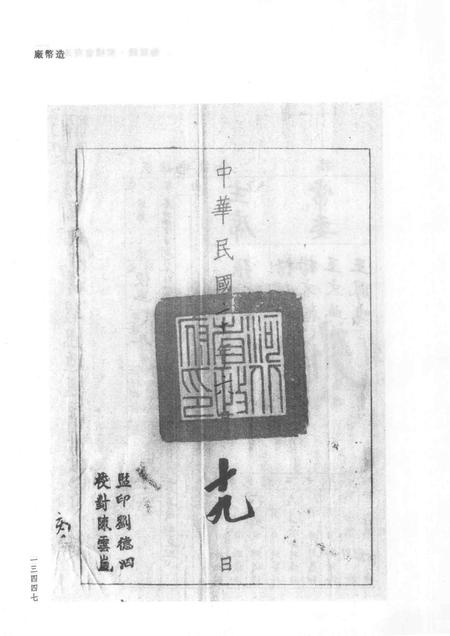 造幣廠
中華民國二年
十九
日
河南省政府印
監印劉德泗
校對陳雲嵐
一三四四七